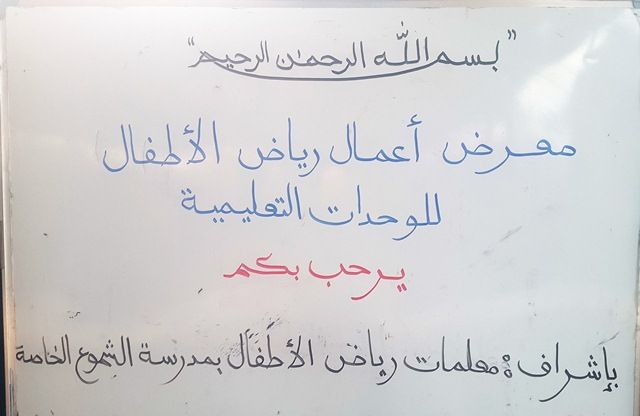 "بسم الله الرحمن الرحيم"
معرض أعمال رياض الأطفال
للوحدات التعليمية
يرحب بكم
بإشراف: معلمات رياض الأطفال بمدرسة الشموع الخاصة